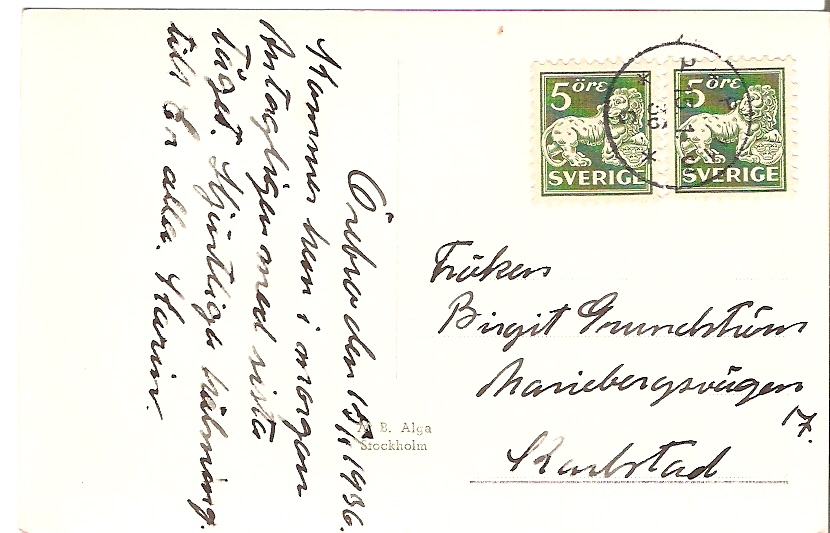 Örebro den 15/11 1936.
Kommer hem i morgon
Antagligen med sista
tåget. Hjärtliga hälsning.
till Er alla. Karin.
5 öre
SVERIGE
5 öre
SVERIGE
Fröken
Birgit Grundström
Mariebergsvägen
17.
Karlstad
B. Alga
Stockholm